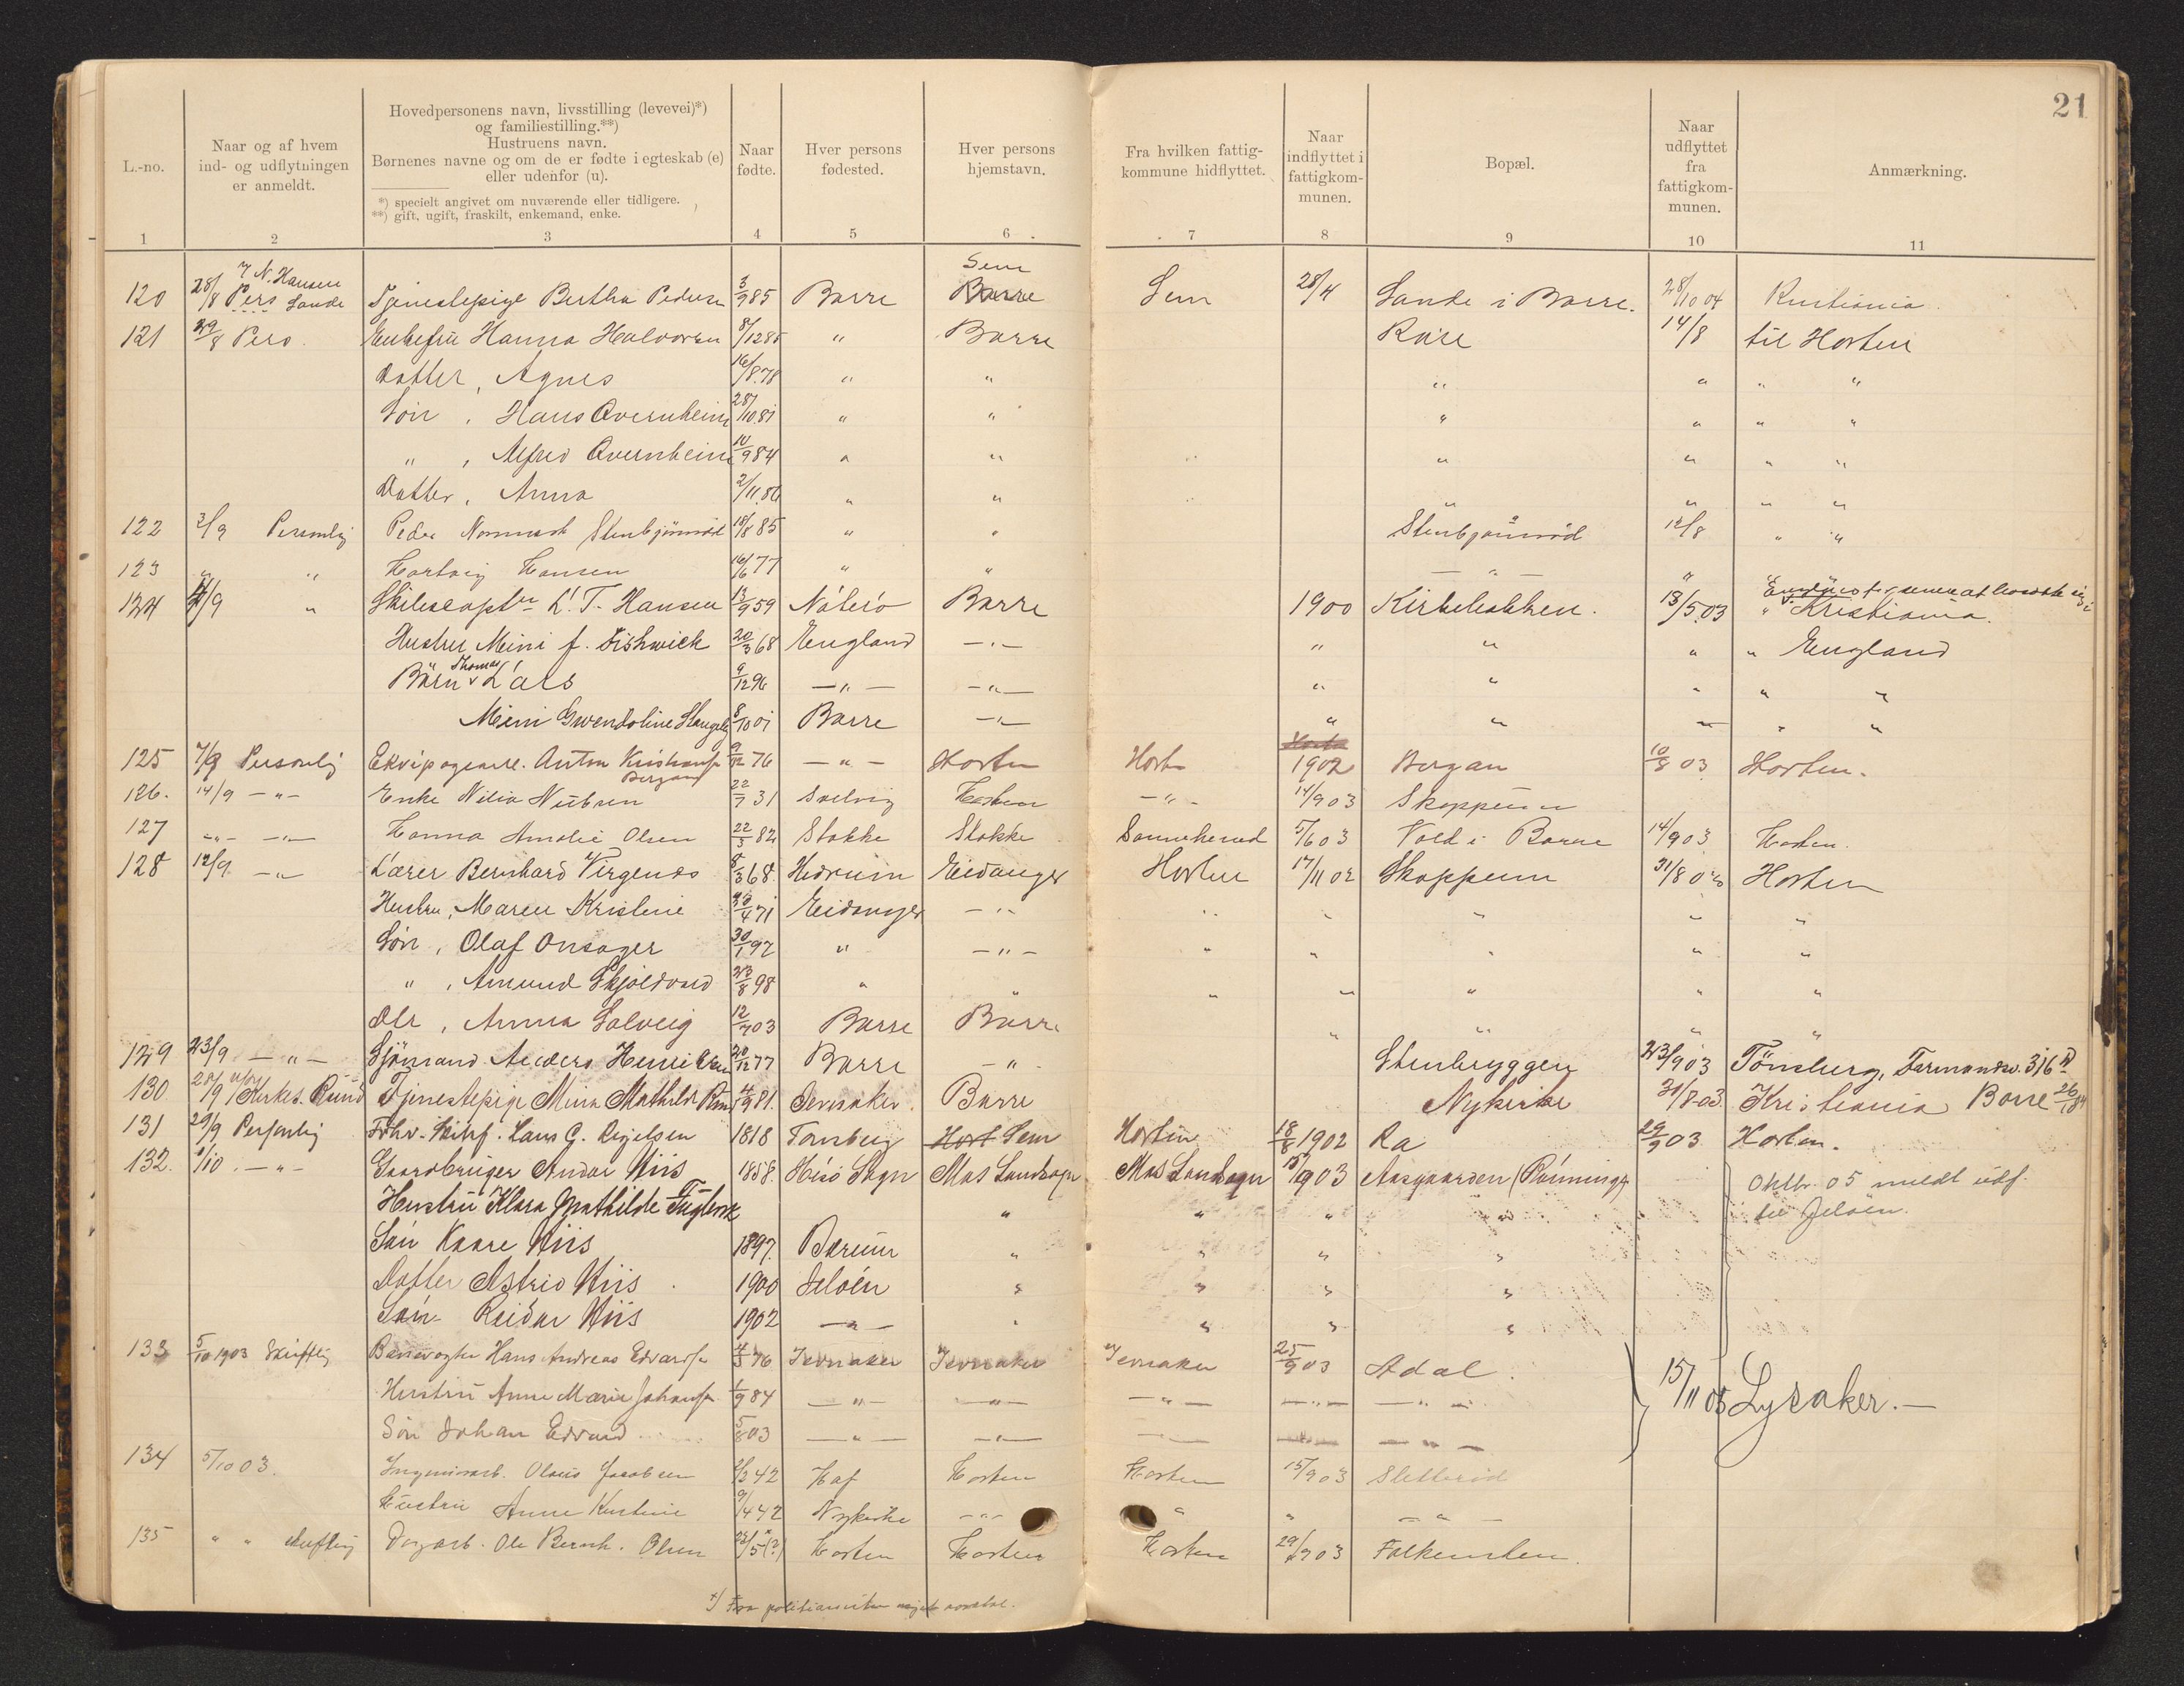 21
L.-no.
Naar og af hvem
ind- og udflytningen
er anmeldt.
Hovedpersonens navn, livsstilling (levevei)*)
og familiestilling.**)
Hustruens navn.
Børnenes navne og om de er fødte i egteskab (e)
eller udenfor (u).
*) specielt angivet om nuværende eller tidligere.
**) gift, ugift, fraskilt, enkemand, enke.
Naar
fødte.
Hver persons
fødested.
Hver persons
hjemstavn.
Fra hvilken fattig-
kommune hidflyttet.
Naar
indflyttet i
fattigkom-
munen.
Bopæl.
Naar
udflyttet
fra
fattigkom-
munen.
Anmærkning.
1 2 3 4 5 6 7 8 9 10 11
N. Hansen Sem
120 28/8 Pers Sande Tjenestepige Bertha Pedersen 3/9 85 Borre Borre Sem 28/4 Sande i Borre. 28/10 04 Kristiania
121 29/8 Pers. Enkefru Hanna Halvorsen 8/12 85 " Borre 14/8 til Horten
Datter, Agnes 16/8.78 " " " " " "
Sön, Hans Qvernheim 28/10.81 " " " " " "
" , Alfred Qvernheim 10/9 84 " " " " " "
Datter, Anna 2/11.86 " " " " " "
122 3/9 Personlig Peder Stenbjönnröd 18/8 85 " " Stenbjönnröd 12/8 " "
123 " " Hartvig Hansen 16/6 77 " " — " — " "
124 4/9 " L. T. Hansen 13/9 59 Nöterö Borre 1900 Kirkebakken. 13/5.03 " Kristiania.
Hustru Mini f. Fishwick 20/3 68 England — " — " " " " England
Thomas
Börn Lars 9/12 96 — " — — " — " " " " "
Mini Gwendoline 8/10 01 Borre — " — " " " " "
125 7/9 Personlig Anton Kristiansen 9/12 76 — " — Horten Horten 1902 Bergan 10/8 03 Horten.
Bergan
126. 14/9 — " — Enke Nilia Nielsen 22/7 31 Svelvig Horten — " — 14/9 03 Skoppum
127 — " — — " — Hanna Amalie Olsen 22/3 82 Stokke Stokke Sannesherred 5/6 03 Vold i Borre 14/9 03 Horten.
128 12/9 — " — Lærer Bernhard Virgenæs 8/3 68 Hedrum Eidanger Horten 17/11 02 Skoppum 31/8 03 Horten
Hustru, Maren Kristine 4 71 Eidanger — " — " " " " "
Sön, Olaf Onsager 30/1 97 " — " — " " " " "
" , Amund Skjoldvard 23/8 98 " " " " " " "
Dtr, Anna Solveig 12/7 03 Borre Borre " " " "
129 23/9 — " — Sjömand Anders Henriksen 20/12 77 Borre — " — Stenbryggen 23/9 03 Tönsberg, Farmandsv. 316
130 Kirkes. Rund Tjenestepige Mina Mathilde 4/9 81. Jevnaker. Borre Nykirke 31/8 03 Kristiania Borre
131 29/9 Personlig Fhv. Skibsf. Lars G. 1818 Tønsberg Hort Sem Horten 18/8 1902 Ra 29/9 03 Horten.
132. 1/10. — " — Gaardbruger Andor Hiis 1858. Sogn Mos Landsogn Mos Landsogn 15/9 03 Aasgaarden (Rönningen) Oktbr. 05 meldt udf.
Hustru Klara Mathilde " " " " til Jelöen.
Sön Kaare Hiis 1897. Bærum " " " "
Datter Astrid Hiis 1900 Jelöen " " " "
Sön Reidar Hiis 1902 — " — " " " "
133 5/10 1903 Skriftlig Banevogter Hans Andreas Edvardsen 4/3 76 Jevnaker Jevnaker Jevnaker 25/9 03 Adal 15/11 05 Lysaker.—
Hustru Anne Marie Johansen 1/9 84 — " — — " — — " — — " — — " —
Sön Johan Edvard 5/8 03 — " — — " — — " — — " — — " —
134 5/10 03. Olaus Jacobsen 2/2 42 Haf Horten Horten 15/9 03 Sletteröd
Hustru Anne Kristine 9/4 42 Nykirke — " — " " — " —
135 " " skriftlig Dagarb. Ole Bernh. Olsen 22/5 (?) Horten Horten Horten 29/9 03 Falkensten.